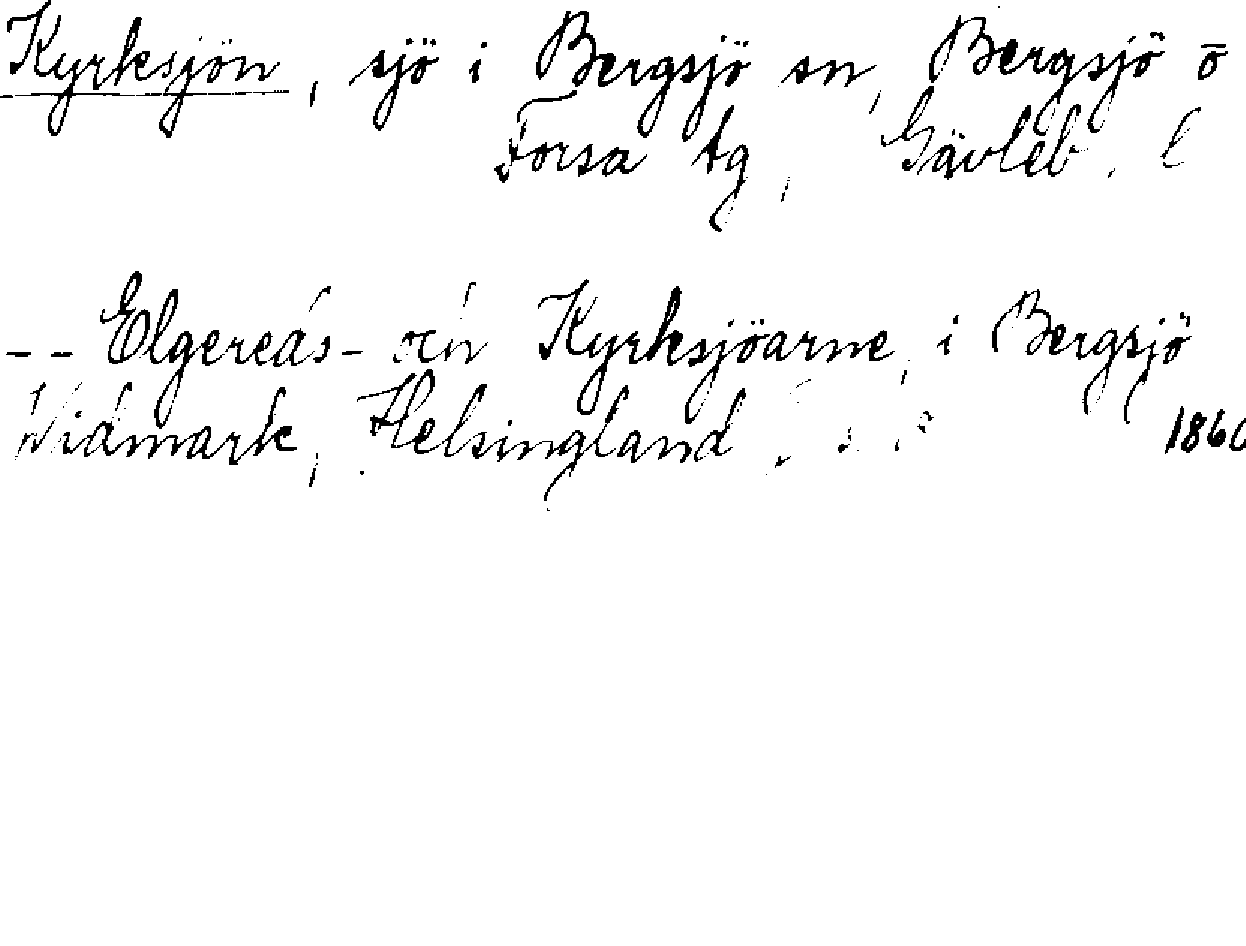 Kyrksjön, sjö i Bergsjö sn, Bergsjö o
Forsa tg, Gävleb. l
-- Elgereås- och Kyrksjöarne, i Bergsjö
Widmark, Helsingland, s. 1860